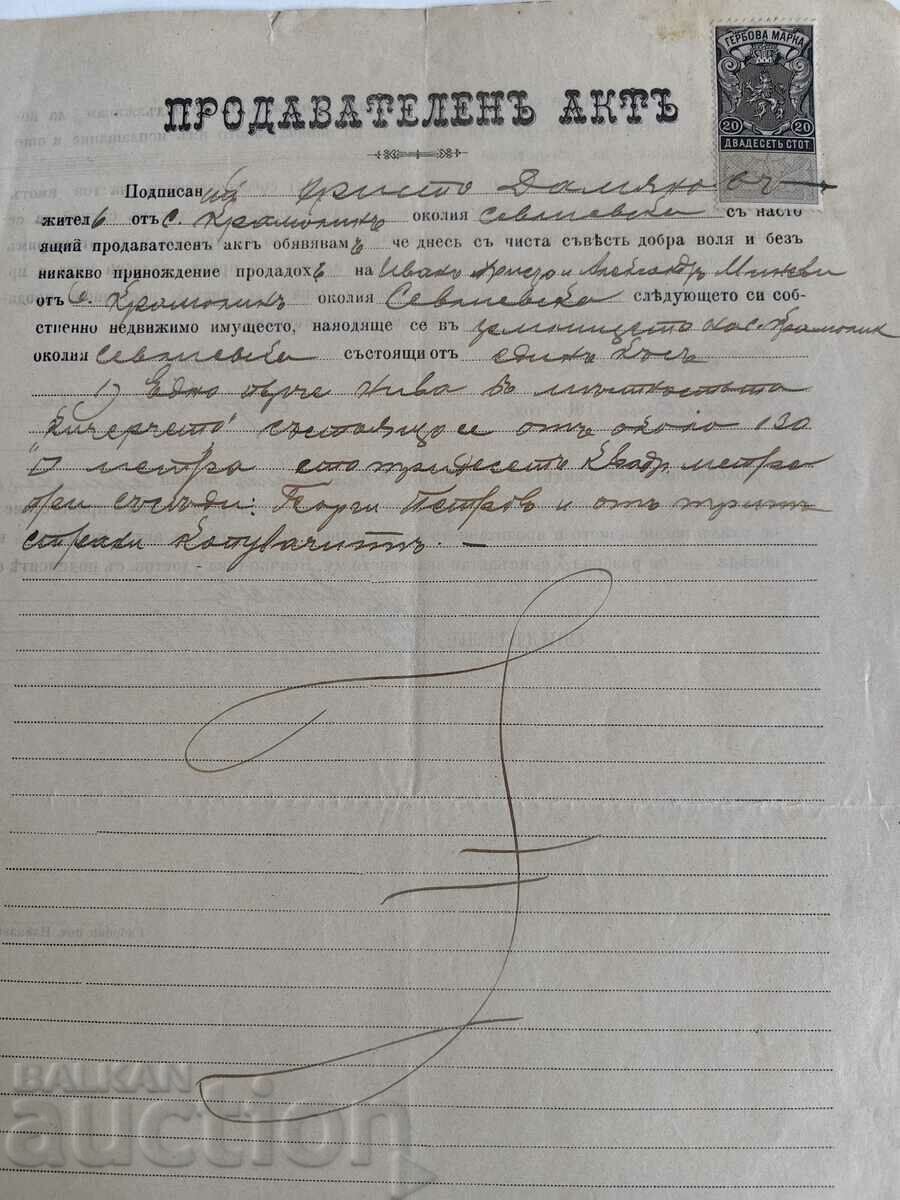 ГЕРБОВА МАРКА
20 20
ДВАДЕСЕТЬ СТОТ.
ПРОДАВАТЕЛЕНЪ АКТЪ
Подписаний Христо Дамяновъ
жителъ отъ с. Крамолинъ околия Севлиевска съ насто
ящий продавателен актъ обявявамъ че днесь съ чиста съвѣсть добра воля и безъ
никакво принождение продадохъ на Иванъ Христо и Александръ Минкови
отъ с. Крамолинъ околия Севлиевска слѣдующето си соб-
ственно недвижимо имущесто, находяще се въ землището на с. Крамолин
околия Севлиевска състоящи отъ единъ къс
1) Едно парче нива в мѣстностьта
„Кичерчето" състояще се отъ около 130
□ метра сто тридесетъ квадр. метра
при съсѣди: Георги Петровъ и отъ тритѣ
страни купувачитѣ. —
BALKAN
auction